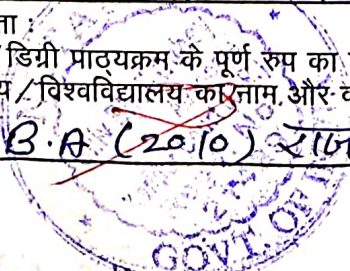 ता :
डिग्री पाठ्यक्रम के पूर्ण रुप का
य/विश्वविद्यालय का नाम, और व
B.A (2010) राज
GOVT. OF I